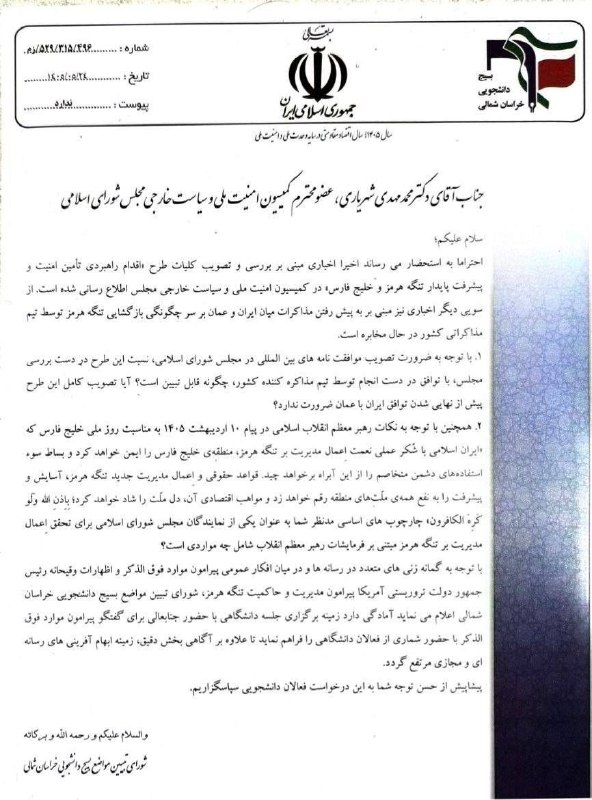 بسمه تعالی
جمهوری اسلامی ایران
بسیج
دانشجویی
خراسان شمالی
شماره : .........۵۲۹/۳۱۵/۴۹۶/زم.
تاریخ : ............۱۴۰۵/۰۵/۲۴
پیوست : ............ندارد............
سال ۱۴۰۵؛ سال اقتصاد مقاومتی در سایه وحدت ملی و امنیت ملی
جناب آقای دکتر محمد مهدی شهریاری، عضو محترم کمیسیون امنیت ملی و سیاست خارجی مجلس شورای اسلامی
سلام علیکم؛
احتراما به استحضار می رساند اخیرا اخباری مبنی بر بررسی و تصویب کلیات طرح «اقدام راهبردی تأمین امنیت و
پیشرفت پایدار تنگه هرمز و خلیج فارس» در کمیسیون امنیت ملی و سیاست خارجی مجلس اطلاع رسانی شده است. از
سویی دیگر اخباری نیز مبنی بر به پیش رفتن مذاکرات میان ایران و عمان بر سر چگونگی بازگشایی تنگه هرمز توسط تیم
مذاکراتی کشور در حال مخابره است.
۱. با توجه به ضرورت تصویب موافقت نامه های بین المللی در مجلس شورای اسلامی، نسبت این طرح در دست بررسی
مجلس، با توافق در دست انجام توسط تیم مذاکره کننده کشور، چگونه قابل تبیین است؟ آیا تصویب کامل این طرح
پیش از نهایی شدن توافق ایران با عمان ضرورت ندارد؟
۲. همچنین با توجه به نکات رهبر معظم انقلاب اسلامی در پیام ۱۰ اردیبهشت ۱۴۰۵ به مناسبت روز ملی خلیج فارس که
«ایران اسلامی با شکر عملی نعمت إعمال مدیریت بر تنگه هرمز، منطقه‌ی خلیج فارس را ایمن خواهد کرد و بساط سوء
استفاده‌های دشمن متخاصم را از این آبراه برخواهد چید. قواعد حقوقی و إعمال مدیریت جدید تنگه هرمز، آسایش و
پیشرفت را به نفع همه‌ی ملّت‌های منطقه رقم خواهد زد و مواهب اقتصادی آن، دل ملّت را شاد خواهد کرد؛ بِإذنِ الله وَلَو
کَرِهَ الکافرون؛ چارچوب های اساسی مدنظر شما به عنوان یکی از نمایندگان مجلس شورای اسلامی برای تحقق إعمال
مدیریت بر تنگه هرمز مبتنی بر فرمایشات رهبر معظم انقلاب شامل چه مواردی است؟
با توجه به گمانه زنی های متعدد در رسانه ها و در میان افکار عمومی پیرامون موارد فوق الذکر و اظهارات وقیحانه رئیس
جمهور دولت تروریستی آمریکا پیرامون مدیریت و حاکمیت تنگه هرمز، شورای تبیین مواضع بسیج دانشجویی خراسان
شمالی اعلام می نماید آمادگی دارد زمینه برگزاری جلسه دانشگاهی با حضور جنابعالی برای گفتگو پیرامون موارد فوق
الذکر با حضور شماری از فعالان دانشگاهی را فراهم نماید تا علاوه بر آگاهی بخش دقیق، زمینه ابهام آفرینی های رسانه
ای و مجازی مرتفع گردد.
پیشاپیش از حسن توجه شما به این درخواست فعالان دانشجویی سپاسگزاریم.
والسلام علیکم و رحمه الله و برکاته
شورای تبیین مواضع بسیج دانشجویی خراسان شمالی